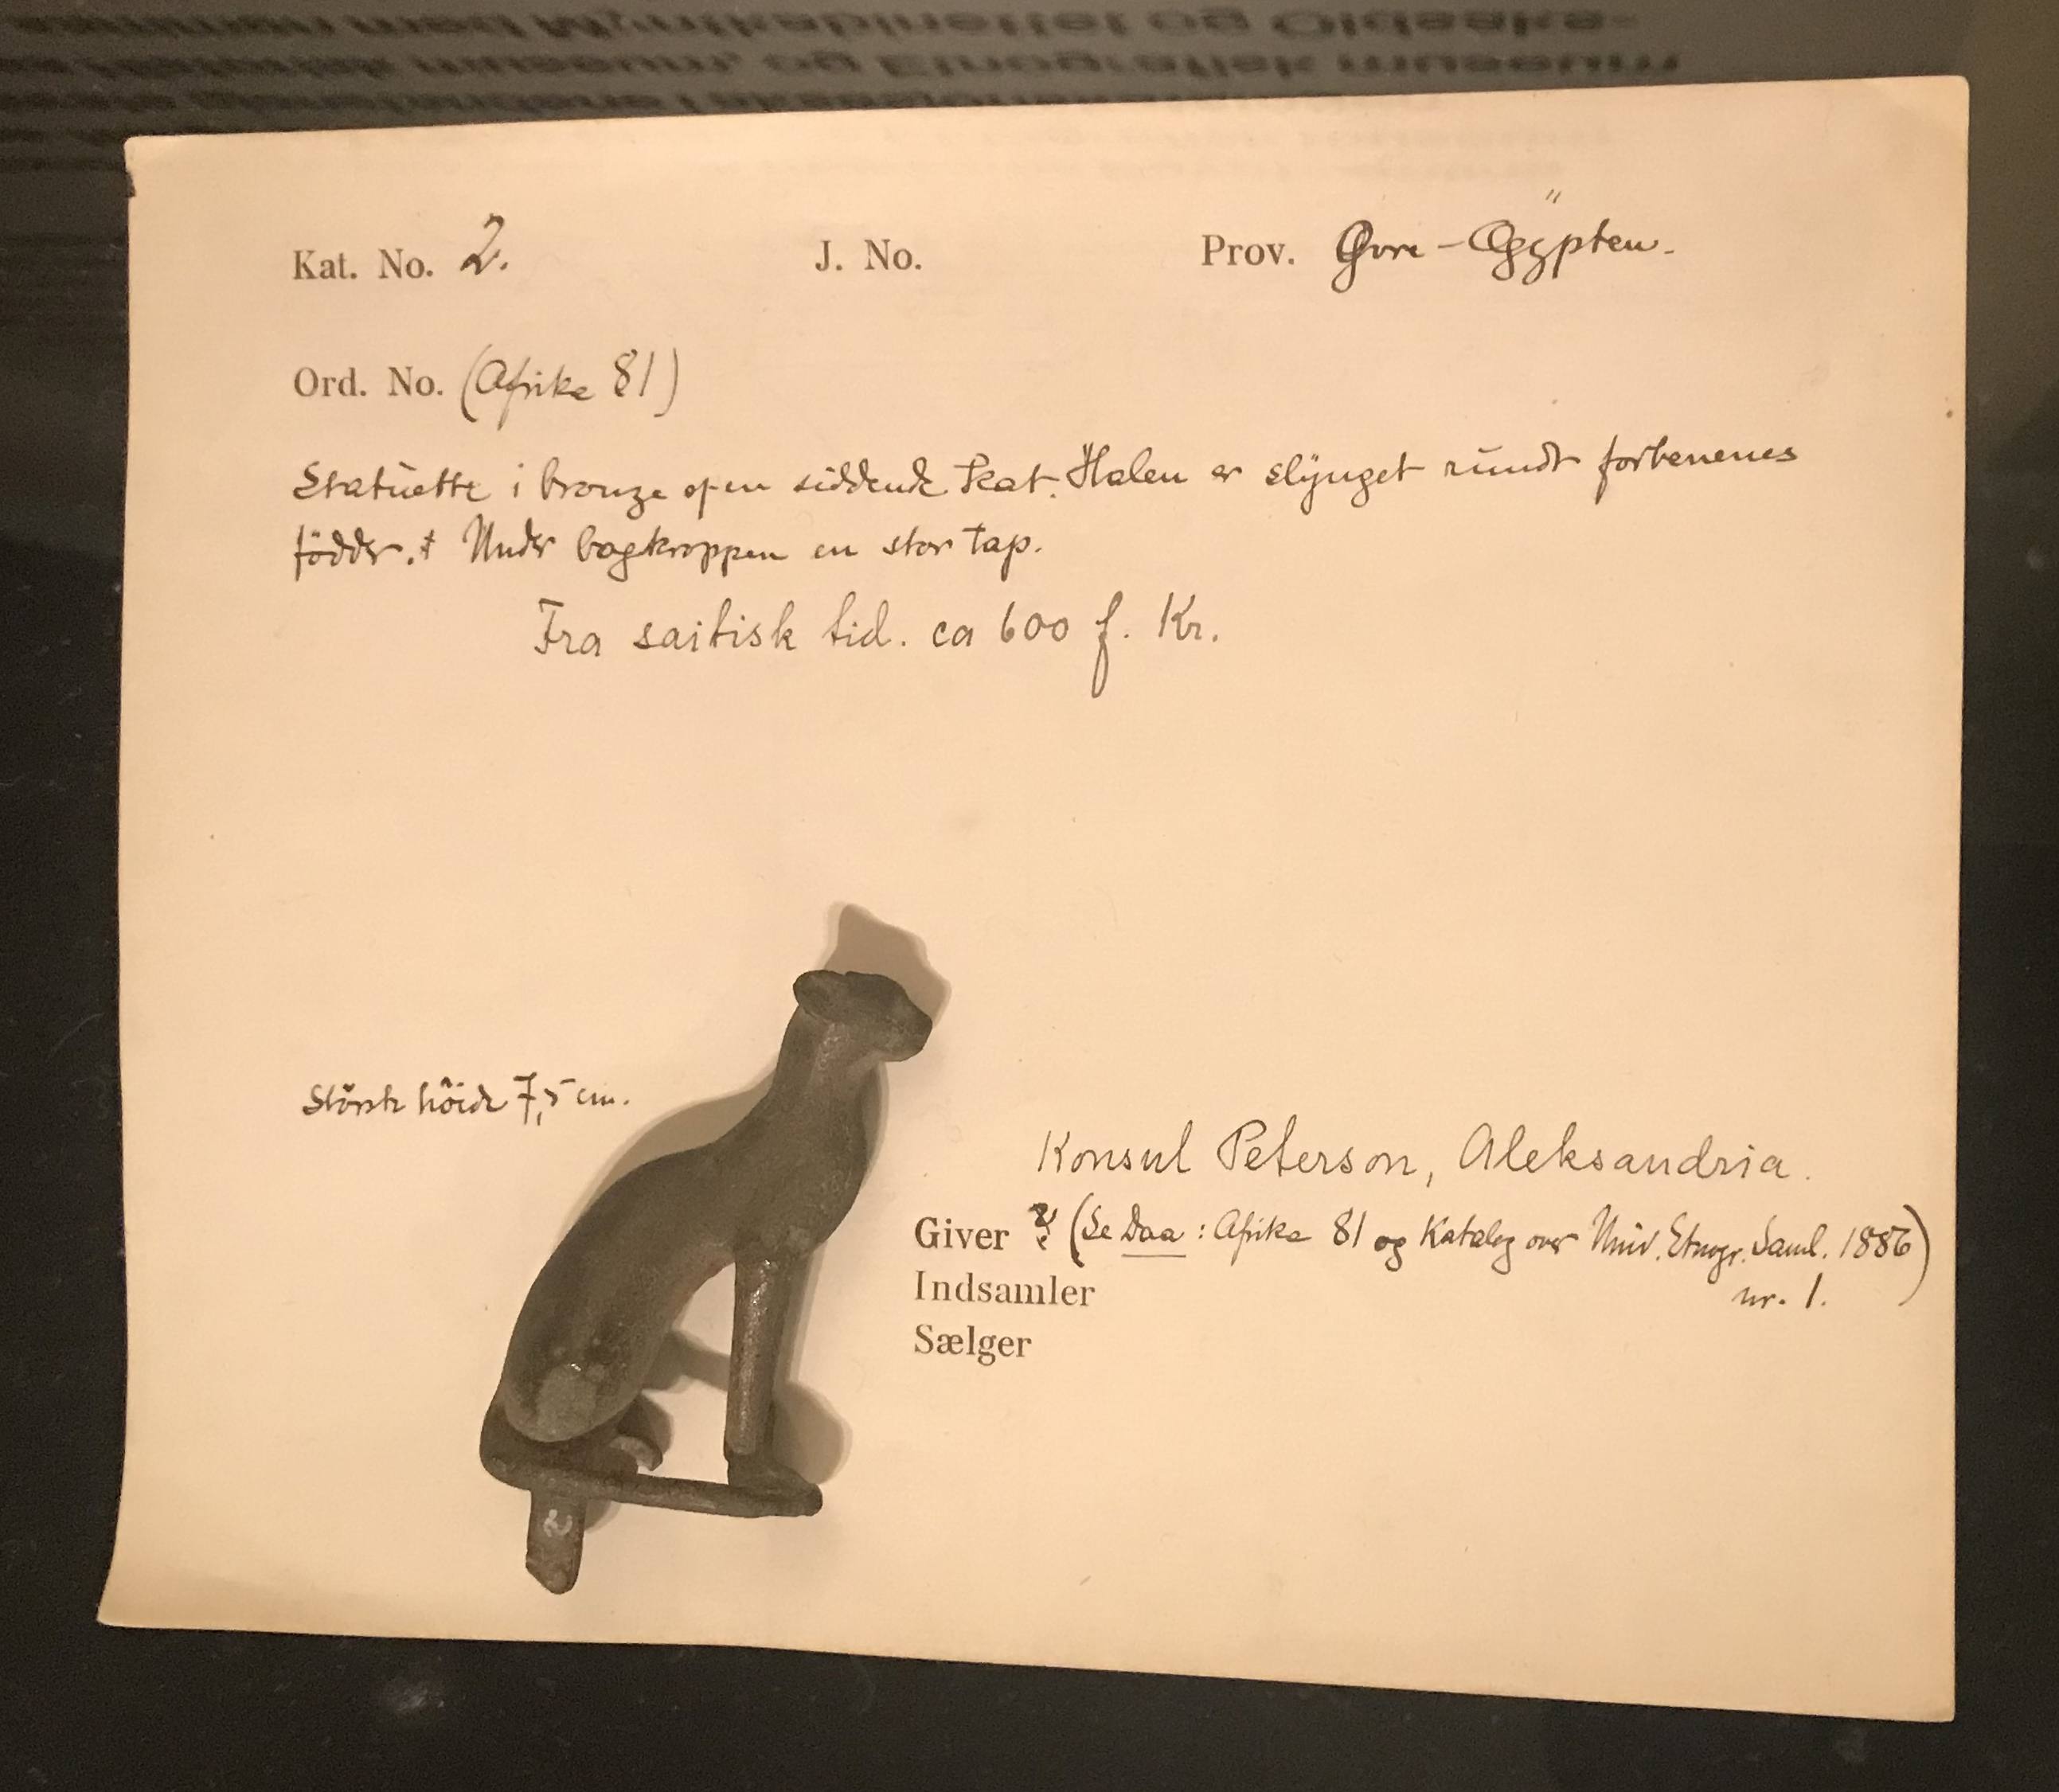 Kat. No. 2. J. No. Prov. Øvre-Ægypten.
Ord. No. (Afrika 81)
Statuette i bronze af en siddende kat. Halen er slynget rundt forbenenes
födder. Under bagkroppen en stor tap.
Fra saitisk tid. ca 600 f. Kr.
Störste höide 7,5 cm.
Konsul Peterson, Aleksandria.
Giver ? (Se Daa: Afrika 81 og Katalog over Univ. Etnogr. Saml. 1886)
nr. 1.
Indsamler
Sælger
2